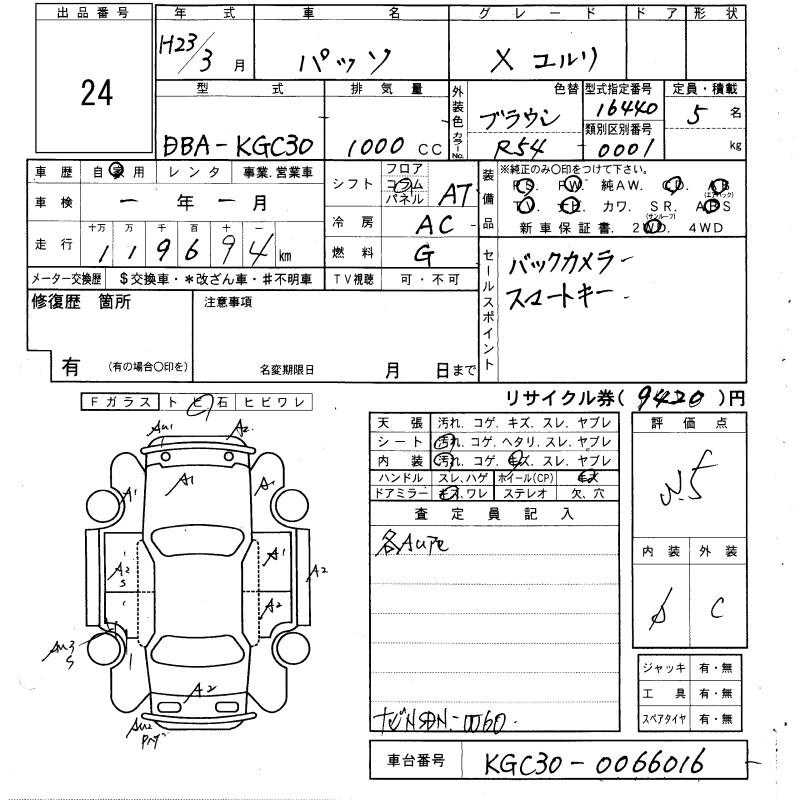 出品番号
24
年式 車名 グレード ドア 形状
H23/3月 パッソ X ユルリ
型式 排気量 外装色 色替 型式指定番号 定員・積載
DBA-KGC30 1000CC ブラウン 16440 5名
カラーNo. R54 類別区別番号 0001 kg
車歴 自家用 レンタ 事業.営業車
車検 ー年ー月
走行 十万 万 千 百 十 一
119694km
メーター交換歴 $交換車・*改ざん車・#不明車
シフト フロア コラム パネル AT
冷房 AC
燃料 G
TV視聴 可・不可
装備品 ※純正のみ○印をつけて下さい。
PS. PW. 純AW. CD. AB(エアバック)
TV. ナビ カワ. SR.(サンルーフ) ABS
新車保証書. 2WD. 4WD
セールスポイント
バックカメラー
スマートキー
修復歴 箇所
有 (有の場合○印を)
注意事項
名変期限日 月 日まで
リサイクル券( 9420 )円
Fガラス トビ石 ヒビワレ
AU1 A2
A1
A1 A
A2 S A1 A2
A2
AU3 S
A2
AU2
天張 汚れ. コゲ. キズ. スレ. ヤブレ
シート 汚れ. コゲ. ヘタリ. スレ. ヤブレ
内装 汚れ. コゲ. キズ. スレ. ヤブレ
ハンドル スレ.ハゲ ホイール(CP) キズ
ドアミラー キズ.ワレ ステレオ 欠.穴
査定員記入
各AU
評価点
内装 外装
C
ジャッキ 有・無
工具 有・無
スペアタイヤ 有・無
車台番号 KGC30-0066016